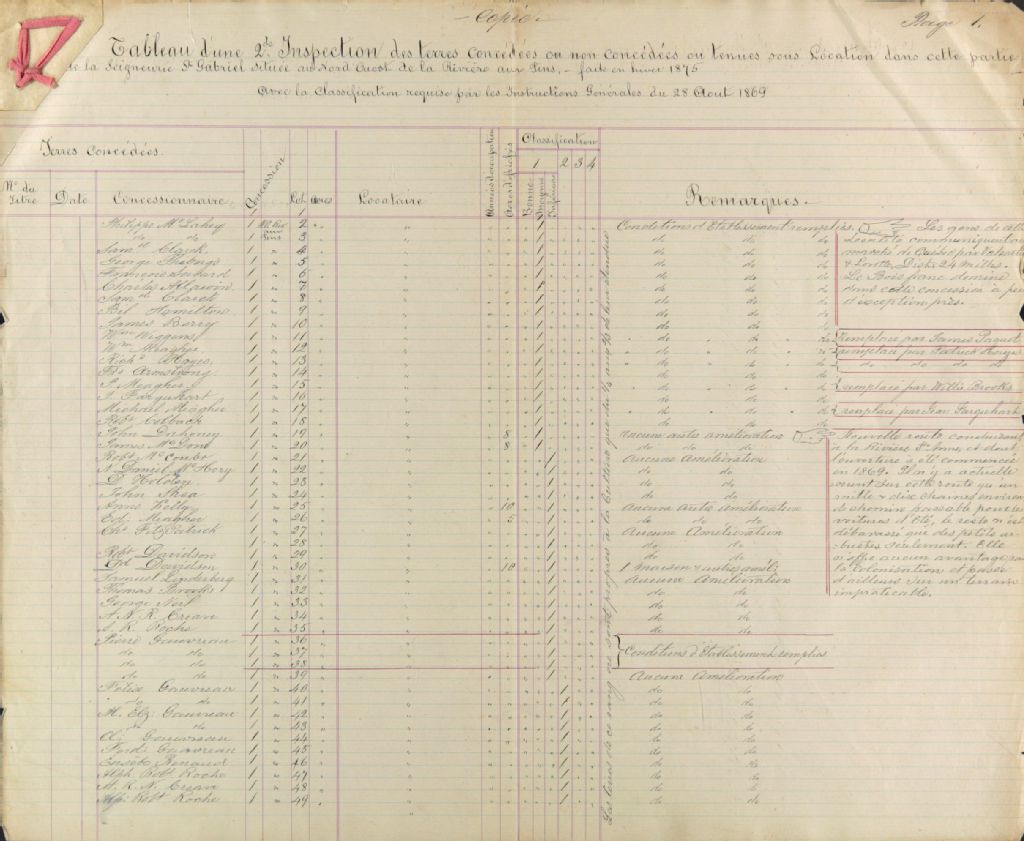 Copie.
Page 1.
Tableau d'une 2de Inspection des terres concédées ou non concédées ou tenues sous Location dans cette partie
de la Seigneurie St Gabriel située au Nord Ouest de la Rivière aux Pins, – faite en hiver 1875
Avec la Classification requise par les Instructions Générales du 28 Aout 1869
Terres Concédées.
Classification
No du Titre
Date
Concessionnaire
Concession
Lot
acres
Locataire
Années d'occupation
Acres défrichés
1 2 3 4
Bonne
Moyenne
Inférieure
Remarques.
1
Philippe McLahey 1 2 1 Conditions d'Etablissement remplies.
do do 1 3 1 do do do
Saml Clark 1 4 1 do do do
George Theberge 1 5 1 do do do
1 6 1 do do do
Charles 1 7 1 do do do
Saml Clark 1 8 1 do do do
Hamilton 1 9 1 do do do
James Berry 1 10 1 do do do
Wm Wiggins 1 11 1 do do do remplacé par James Paquet
Wm 1 12 1 do do do remplacé par Patrick Hayes
Richd Hayes 1 13 1 do do do
Armstrong 1 14 1 do do do
P. Meagher 1 15 1 do do do remplacé par Willis Brooks
J. Farquhart 1 16 1 do do do
Michael Meagher 1 17 1 do do do remplacé par Jean Farquhart
Robt 1 18 1 do do do
John Dahoney 1 19 8 1 aucune autre amélioration
James McCord 1 20 8 1 do do do
Robt McCombe 1 21 1 Aucune Amélioration
N. Daniel McHery 1 22 1 do do
D. Holden 1 23 1 do do
John Shea 1 24 1 do do
Anne Kelly 1 25 10 1 Aucune Autre Amélioration
Meagher 1 26 5 1 do do do
Chs Fitzpatrick 1 27 1 Aucune Amélioration
1 28 1 do do
Robt Davidson 1 29 1 do do
Davidson 1 30 10 1 1 maison & autres amél.
Samuel Linderberg 1 31 1 Aucune Amélioration
Thomas Brooks 1 32 1 do do
George Neil 1 33 1 do do
A. N. R. Crean 1 34 1 do do
A. R. Roche 1 35 1 do do
Pierre Gauvreau 1 36 1
do do 1 37 1 Conditions d'Etablissement remplies
1 38 1
do do 1 39 1 Aucune Amélioration
Félix Gauvreau 1 40 1 do do
do do 1 41 1 do do
M. Elz. Gauvreau 1 42 1 do do
do 1 43 1 do do
Gauvreau 1 44 1 do do
Ferd. Gauvreau 1 45 1 do do
Eusèbe Renaud 1 46 1 do do
Alph. Robt Roche 1 47 1 do do
A. R. N. Crean 1 48 1 do do
Alp. Robt Roche 1 49 1 do do
Les gens de cette
Localité communiquent au
marché de Québec par Valcartier
& Lorette, Distce 24 milles.
Le Bois franc domine
dans cette concession à peu
d'exception près.
Nouvelle route conduisant
à la Rivière Ste Anne, et dont
l'ouverture a été commencée
en 1869. Il n'y a actuelle
ment sur cette route qu'un
mille & dix chaines environ
de chemin passable pour les
voitures d'Eté, le reste n'est
débarrassé que des petits ar-
bustes seulement. Elle
n'offre aucun avantage pour
la colonisation et passe
d'ailleurs sur un terrain
impraticable.